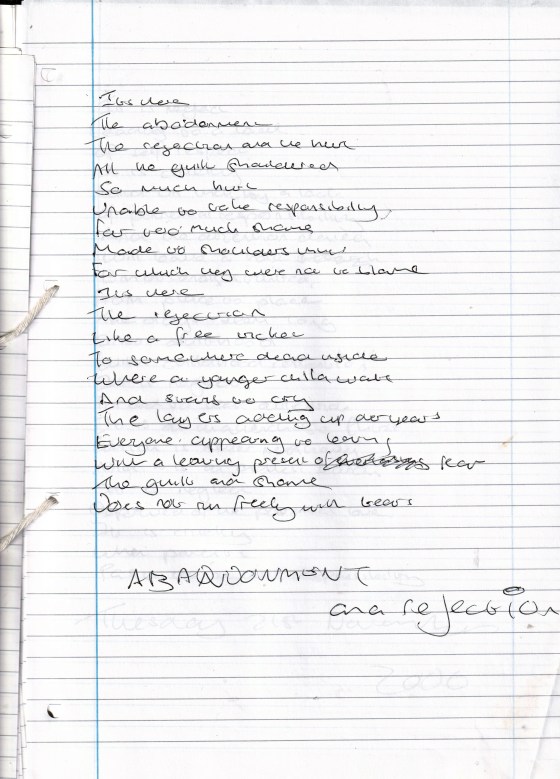 Its here
The abodonment
The rejection and the hurt
All the guilt shouldered
So much hurt
Unable to take responsibility,
Far too much shame
Made to shoulders
For which they were not to blame
Its here
The rejection
Like a free ticket
To somewhere dead inside
Where a younger child waits
And starts to cry
The layers adding up over years
Everyone appearing to leaving
With a leaving present of fear
The guilt and shame
Does not run freely with tears
ABANDONMENT
and rejection
Tuesday
2000